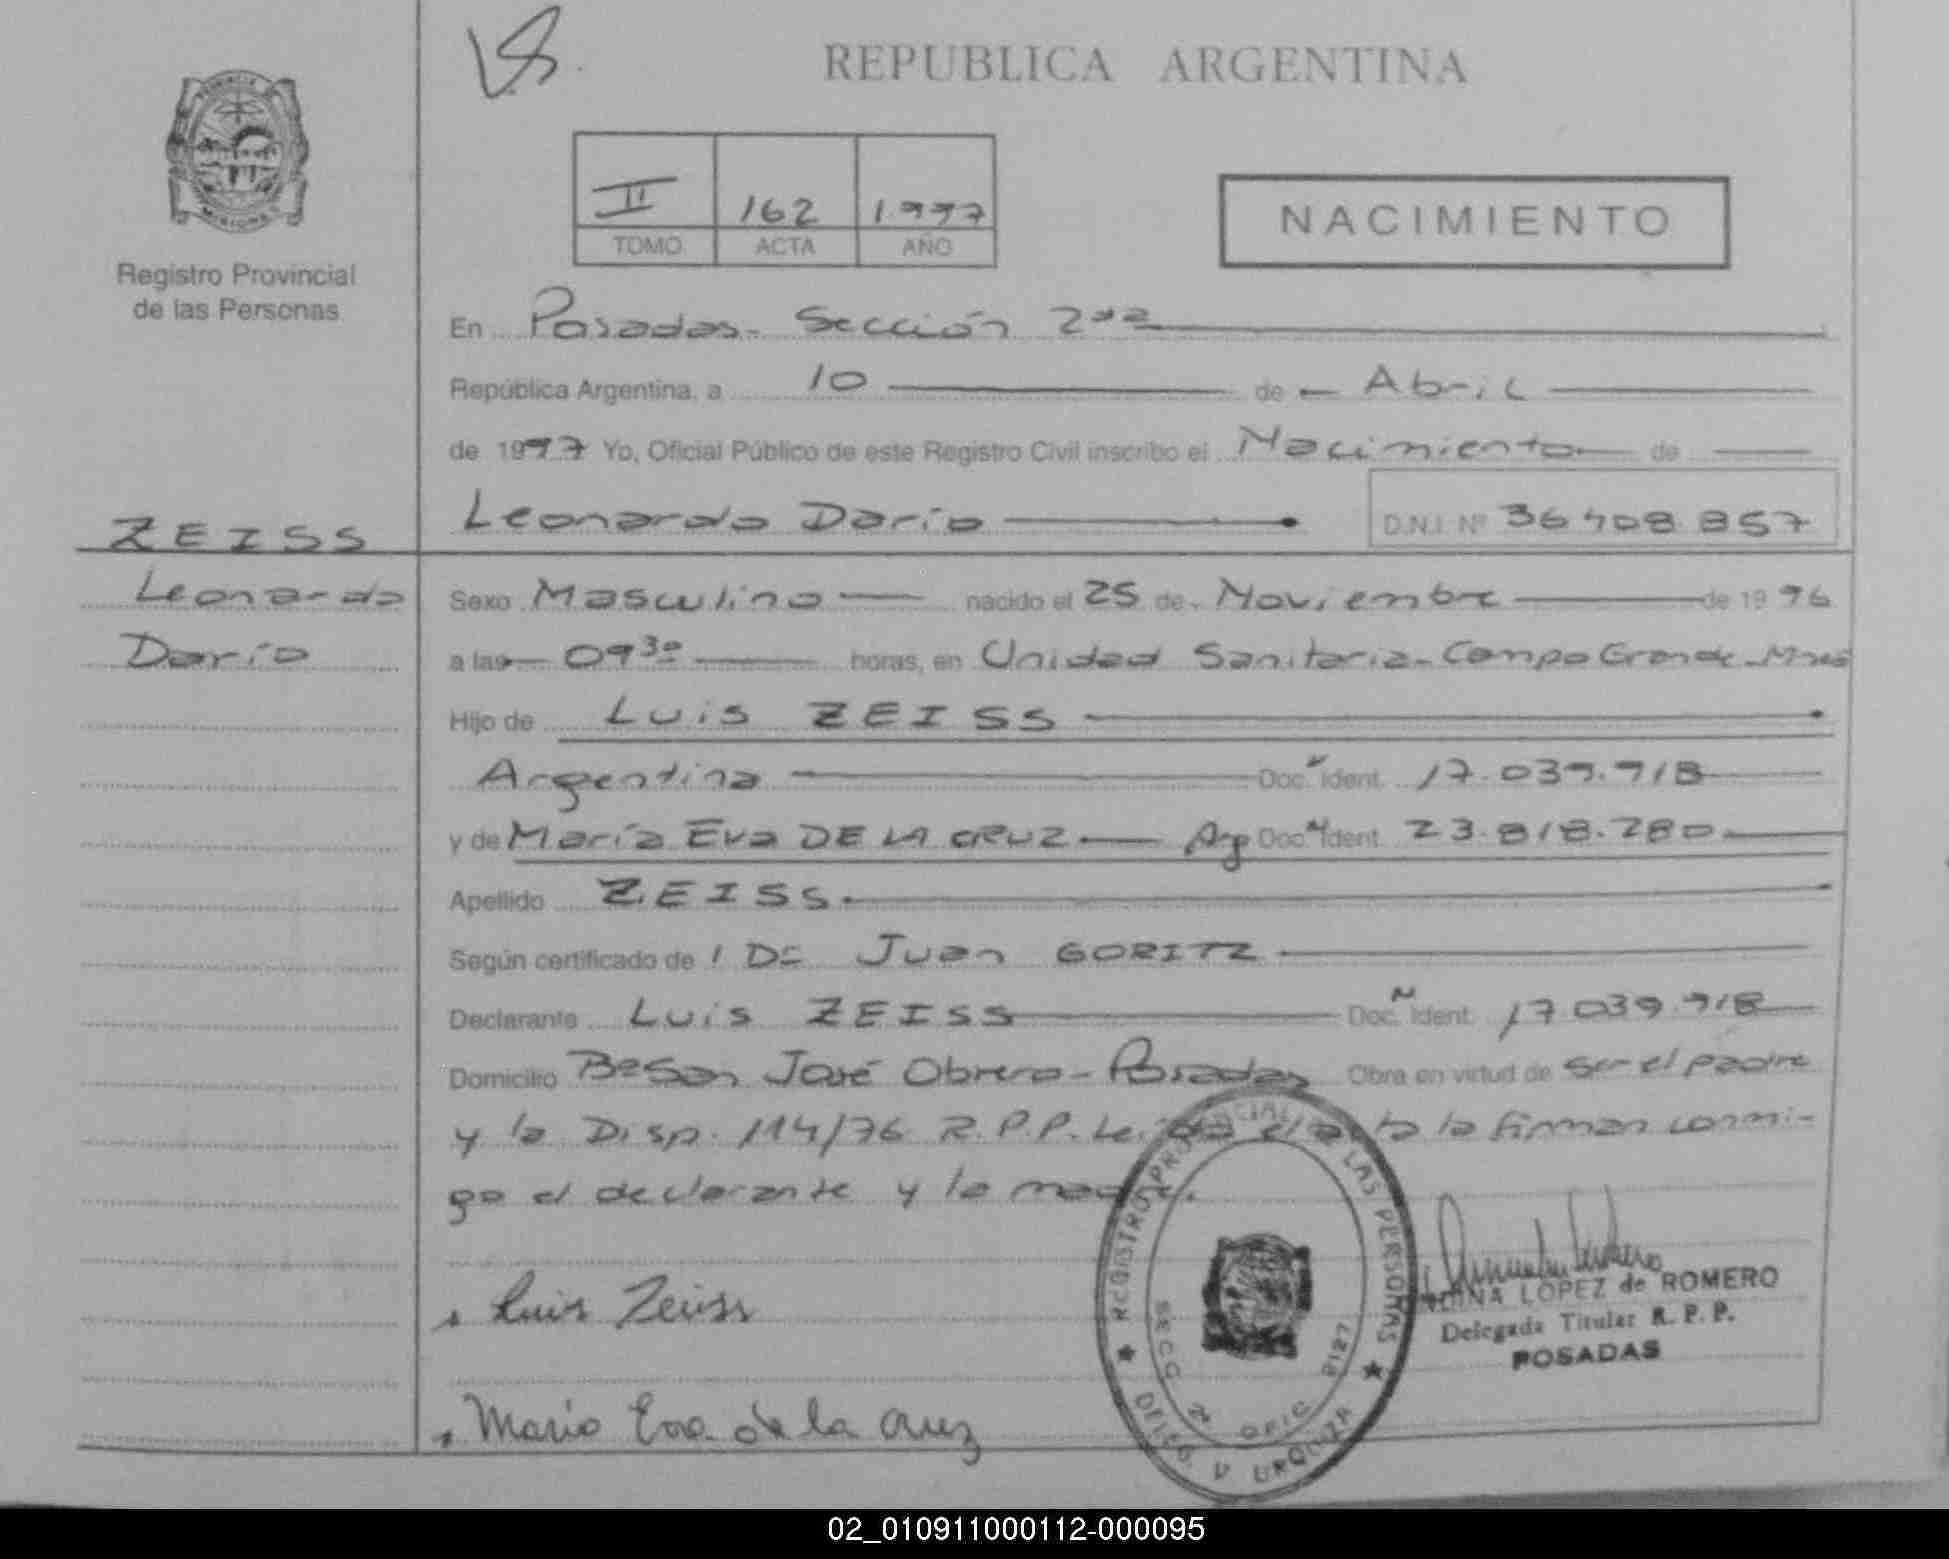 REPUBLICA ARGENTINA
PROVINCIA
MISIONES
Registro Provincial
de las Personas
II 162 1997
TOMO ACTA AÑO
NACIMIENTO
En Posadas - Sección 2da
República Argentina, a 10 de Abril
de 1997 Yo, Oficial Público de este Registro Civil inscribo el Nacimiento de
ZEISS
Leonardo Darío D.N.I. Nº 36408857
Leonardo
Darío
Sexo Masculino nacido el 25 de Noviembre de 1996
a las 09 30 horas, en Unidad Sanitaria - Campo Grande - Mnes
Hijo de Luis ZEISS
Argentina Doc. Ident. 17.039.918
y de María Eva DE LA CRUZ Arg Doc. Ident. 23.818.280
Apellido ZEISS
Según certificado de Dr Juan GORITZ
Declarante Luis ZEISS Doc. Ident. 17.039.918
Domicilio Bº San José Obrero - Posadas Obra en virtud de ser el padre
y la Disp. 114/76 R.P.P. Leída el acta la firman conmi-
go el declarante y la madre.
Luis Zeiss
LOPEZ de ROMERO
Delegada Titular R. P. P.
POSADAS
REGISTRO PROVINCIAL DE LAS PERSONAS
SECC 2ª OFIC 8127
V URQUIZA
Maria Eva de la Cruz
02_010911000112-000095